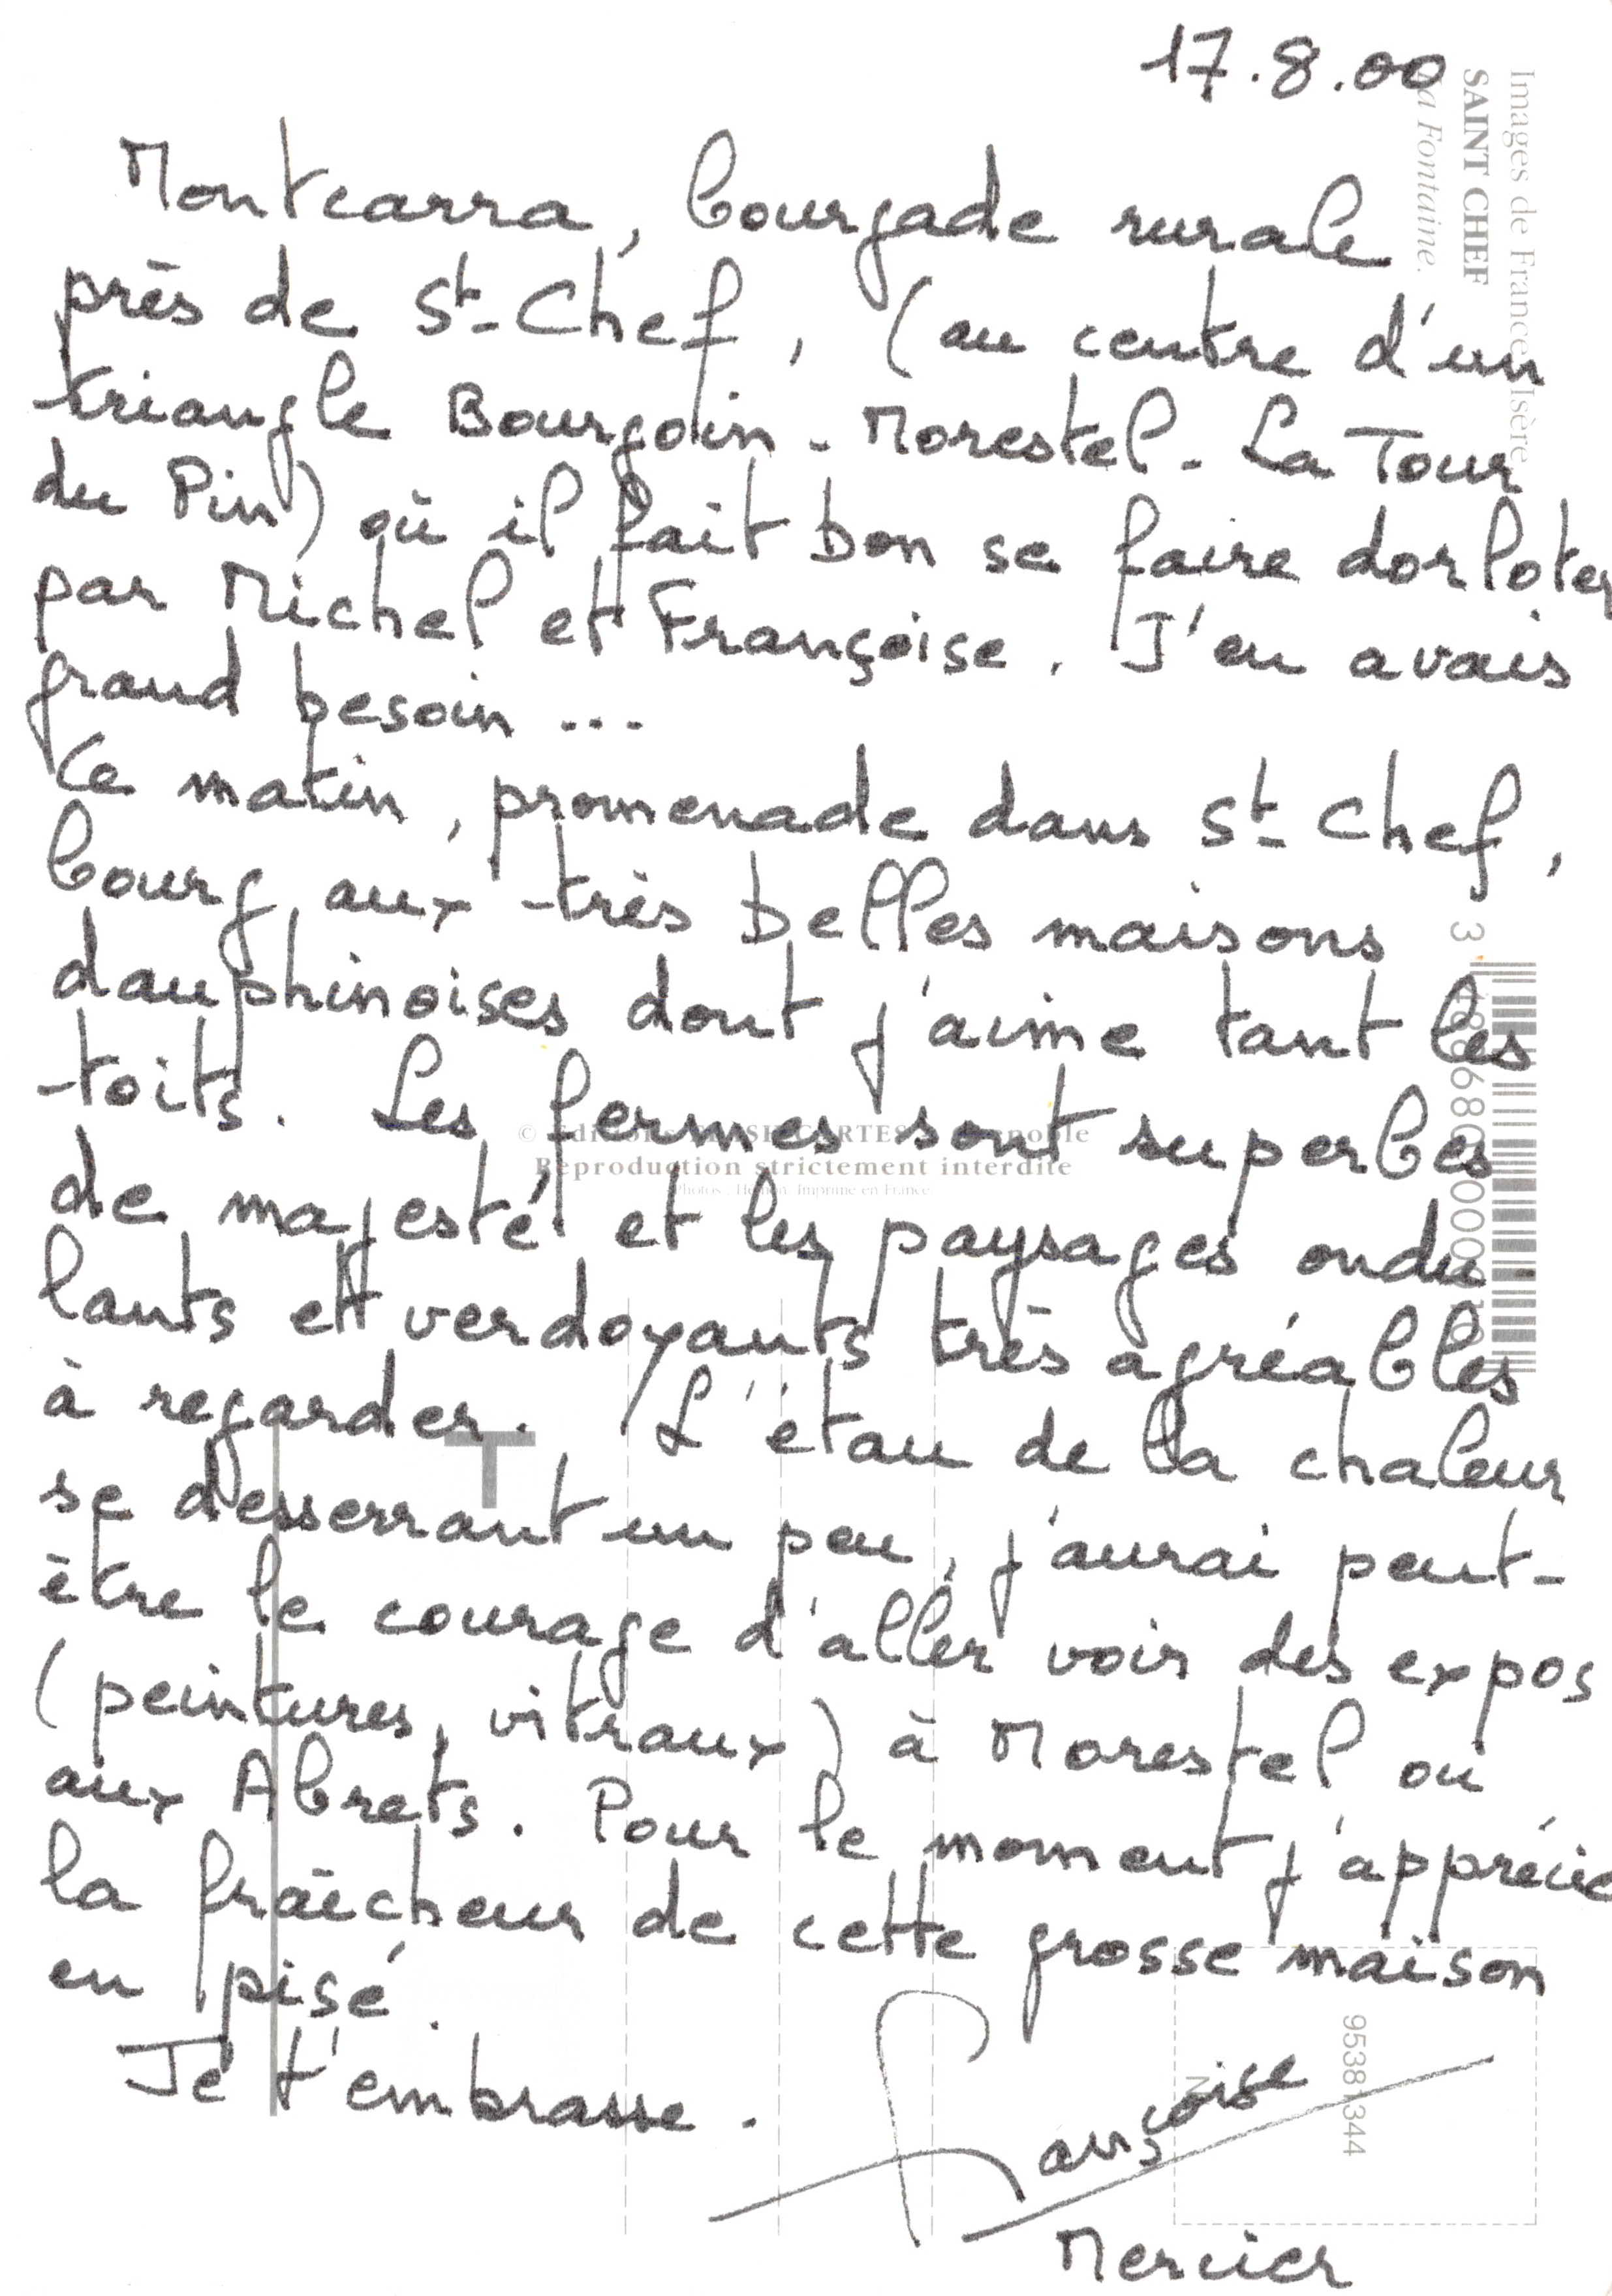 17.8.00
Montcarra, bourgade rurale
près de St-Chef, (au centre d'un
triangle Bourgoin - Morestel - La Tour
du Pin) où il fait bon se faire dorloter
par Michel et Françoise. J'en avais
grand besoin ...
Ce matin, promenade dans St-Chef,
bourg aux très belles maisons
dauphinoises dont j'aime tant les
toits. Les fermes sont superbes
de majesté et les paysages ondu
lants et verdoyants très agréables
à regarder. L'étau de la chaleur
se desserrant un peu, j'aurai peut-
être le courage d'aller voir des expos
(peintures, vitraux) à Morestel ou
aux Abrets. Pour le moment j'apprécie
la fraîcheur de cette grosse maison
en pisé.
Je t'embrasse.
Françoise
Mercier
Images de France Isère
SAINT CHEF
La Fontaine.
Reproduction strictement interdite
Imprimé en France.
95381344